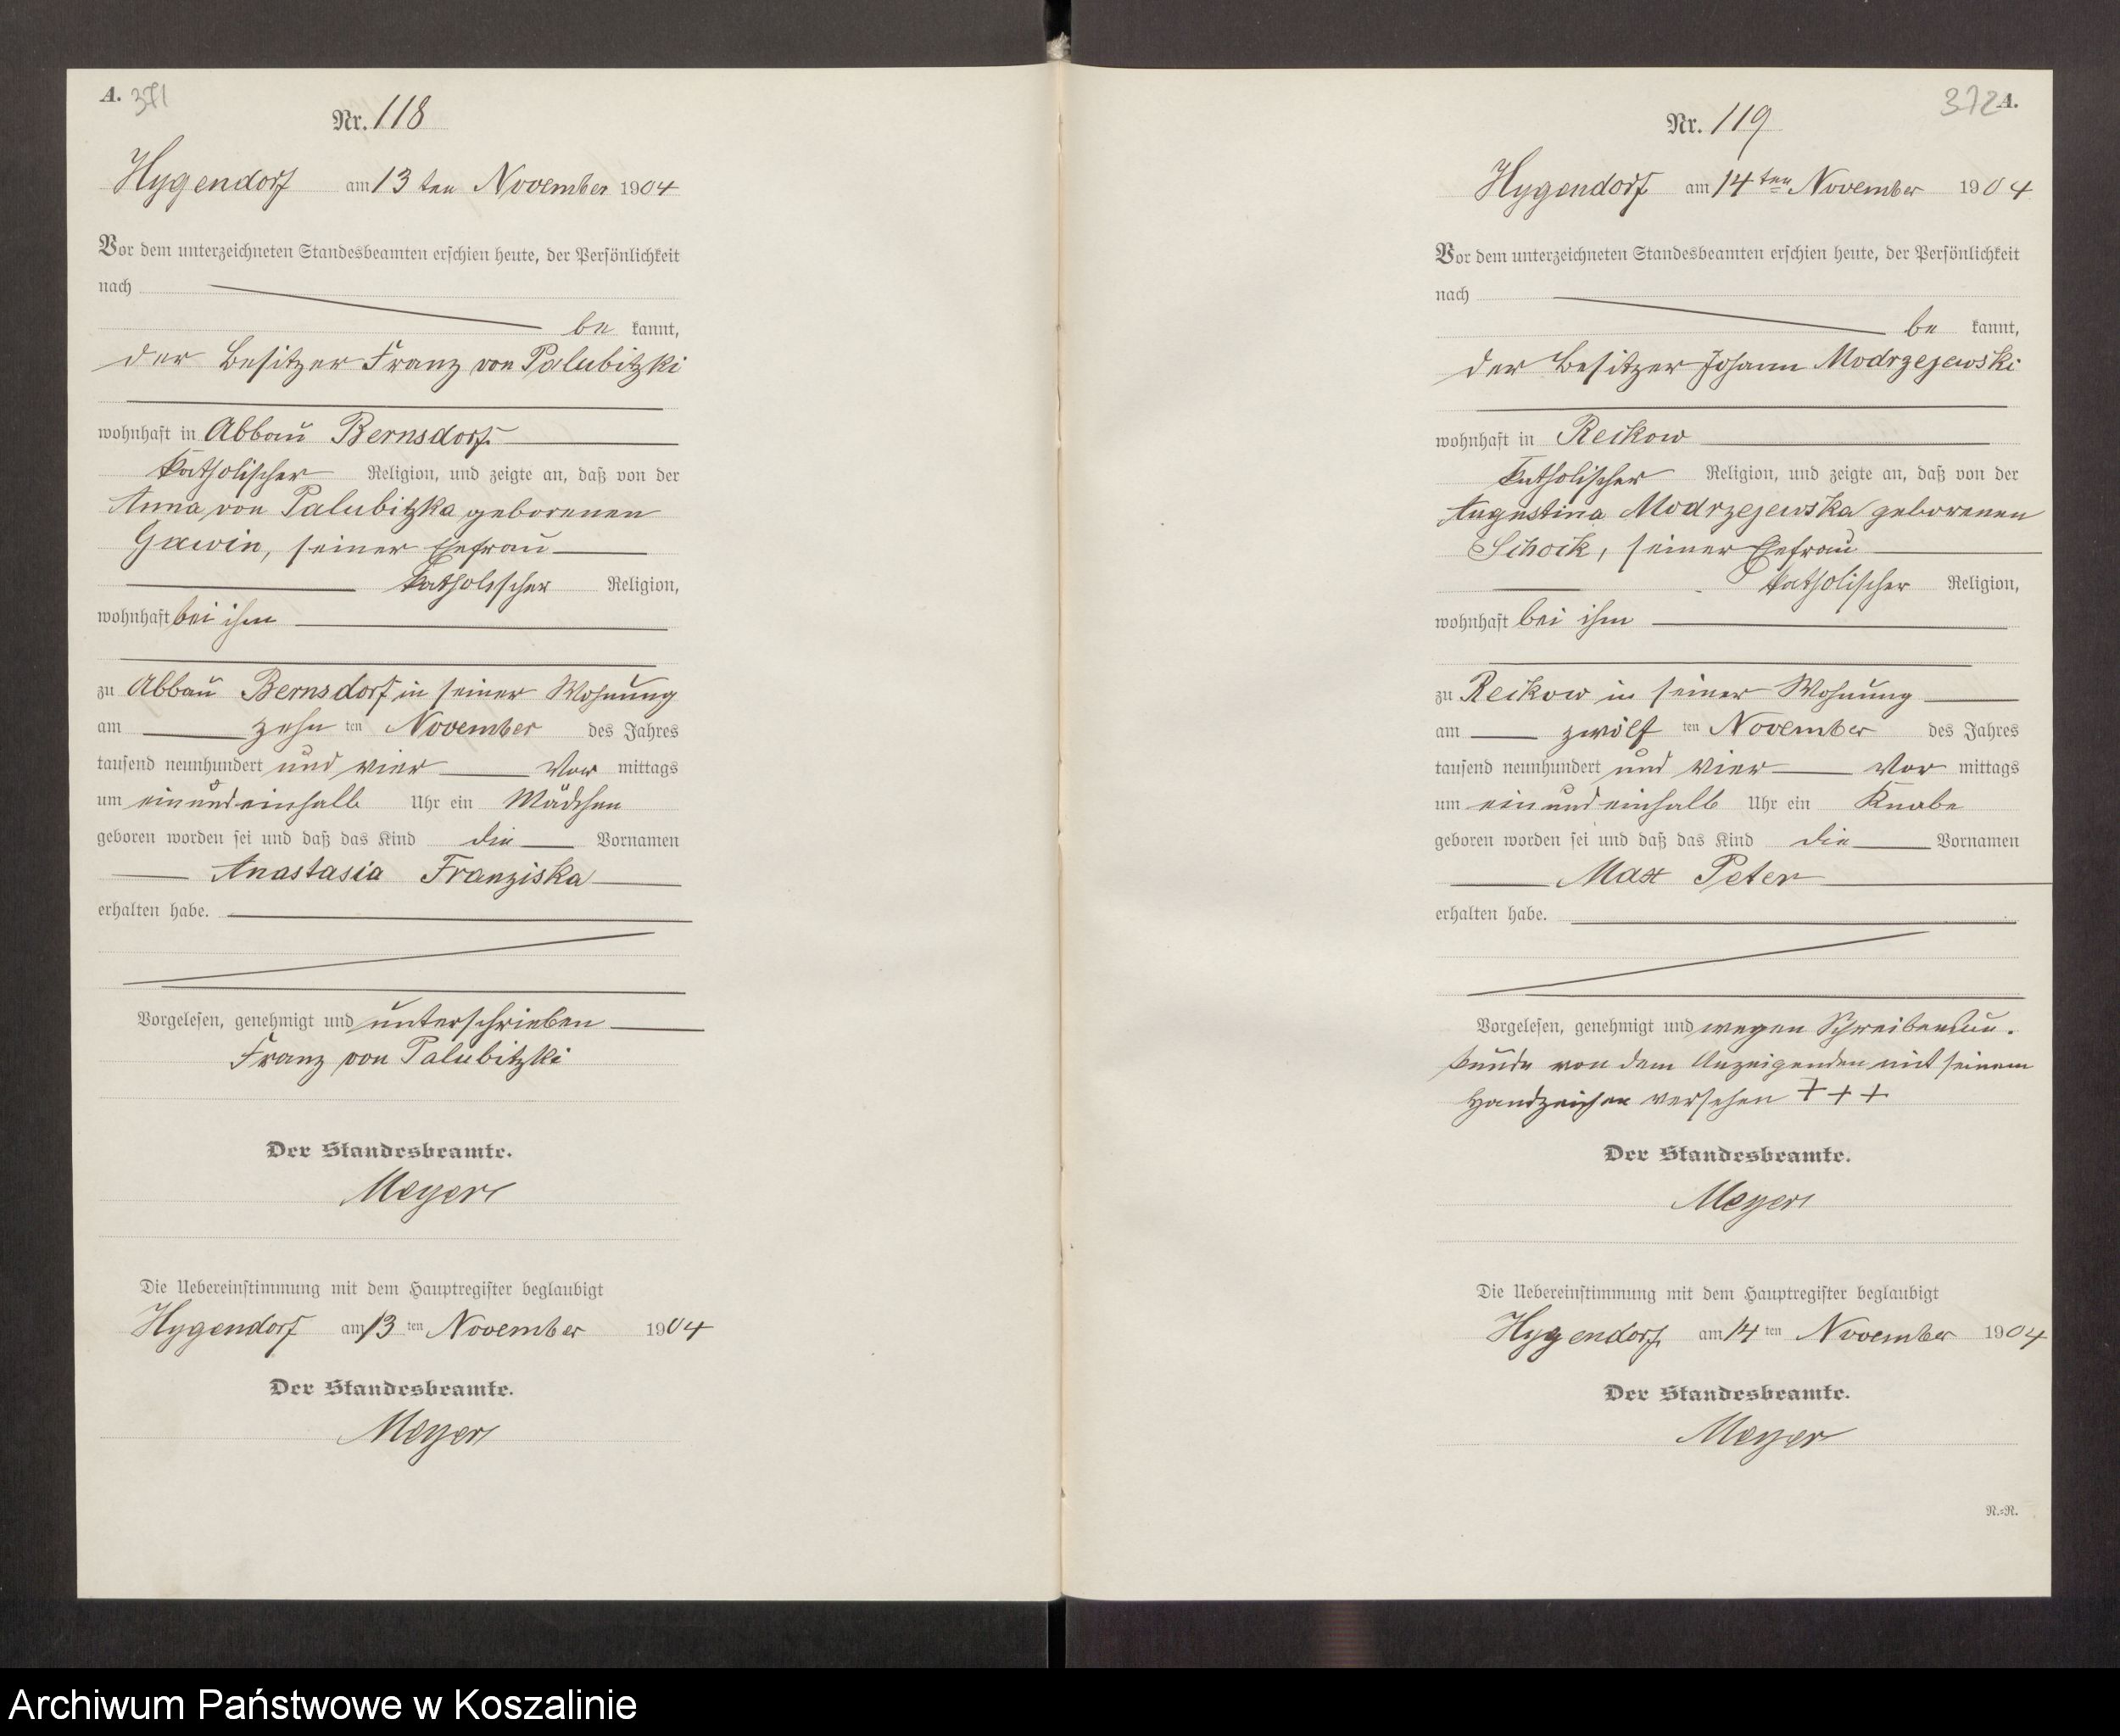 A. 371
Nr. 118
Hygendorf am 13 ten November 1904
Vor dem unterzeichneten Standesbeamten erschien heute, der Persönlichkeit
nach
be kannt,
der Besitzer Franz von Palubitzki
wohnhaft in Abbau Bernsdorf
katholischer Religion, und zeigte an, daß von der
Anna von Palubitzka geborenen
Gawin, seiner Ehefrau
katholischer Religion,
wohnhaft bei ihm
zu Abbau Bernsdorf in seiner Wohnung
am zehn ten November des Jahres
tausend neunhundert und vier Vor mittags
um einundeinhalb Uhr ein Mädchen
geboren worden sei und daß das Kind die Vornamen
Anastasia Franziska
erhalten habe.
Vorgelesen, genehmigt und unterschrieben
Franz von Palubitzki
Der Standesbeamte.
Meyer
Die Uebereinstimmung mit dem Hauptregister beglaubigt
Hygendorf am 13 ten November 1904
Der Standesbeamte.
Meyer
372 A.
Nr. 119
Hygendorf am 14 ten November 1904
Vor dem unterzeichneten Standesbeamten erschien heute, der Persönlichkeit
nach
be kannt,
der Besitzer Johann Modrzejewski
wohnhaft in Reckow
katholischer Religion, und zeigte an, daß von der
Augustina Modrzejewska geborenen
Schock, seiner Ehefrau
katholischer Religion,
wohnhaft bei ihm
zu Reckow in seiner Wohnung
am zwölf ten November des Jahres
tausend neunhundert und vier Vor mittags
um einundeinhalb Uhr ein Knabe
geboren worden sei und daß das Kind die Vornamen
Max Peter
erhalten habe.
Vorgelesen, genehmigt und wegen Schreibensun-
kunde von dem Anzeigenden mit seinem
Handzeichen versehen + + +
Der Standesbeamte.
Meyer
Die Uebereinstimmung mit dem Hauptregister beglaubigt
Hygendorf am 14 ten November 1904
Der Standesbeamte.
Meyer
N.=R.
Archiwum Państwowe w Koszalinie